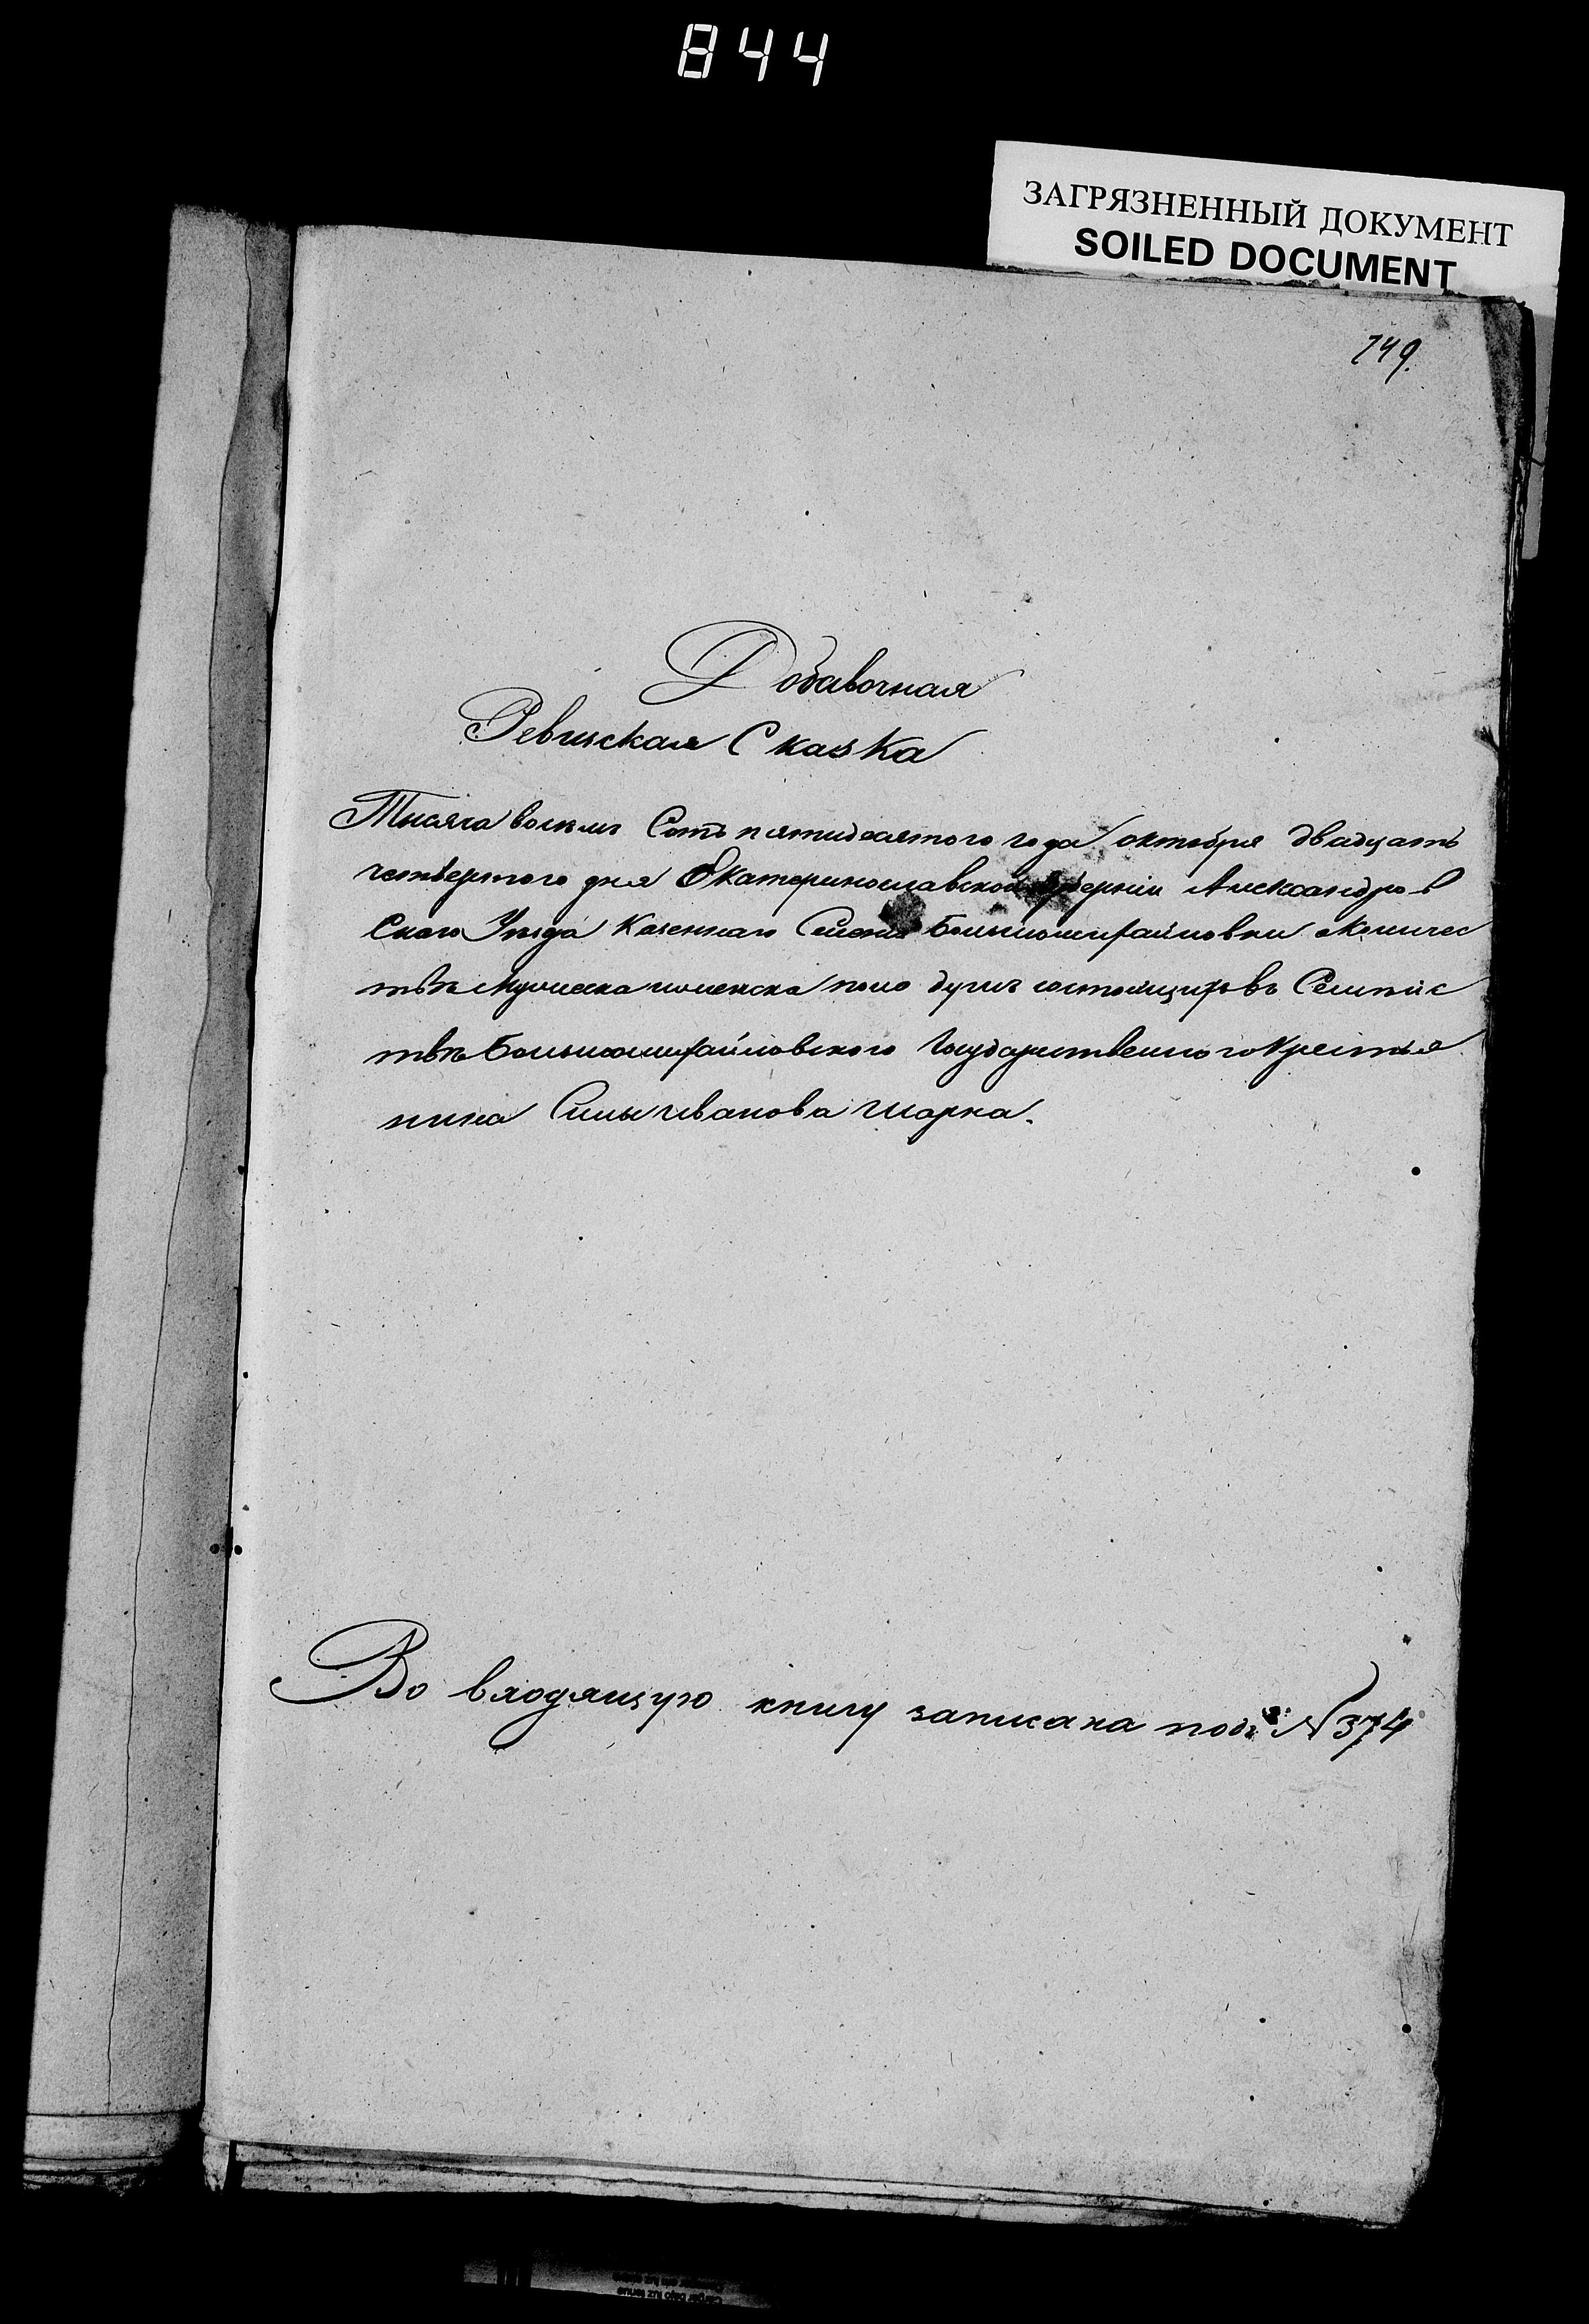 844
ЗАГРЯЗНЕННЫЙ ДОКУМЕНТ
SOILED DOCUMENT
749.
Добавочная
Ревизская Сказка
Тысяча восемь Сотъ пятидесятого года октября двадцать
четвертого дня Екатеринославской губернии Александров
Ского Уезда Казенного Селения Большомихайловки околичес
тве мужеска и женска пола душъ состоящихъ въ Семтйс
тве Большомихайловского Государственного Крестья
нина Силы Иванова Шарка.
Во входящую книгу записана подъ N 374